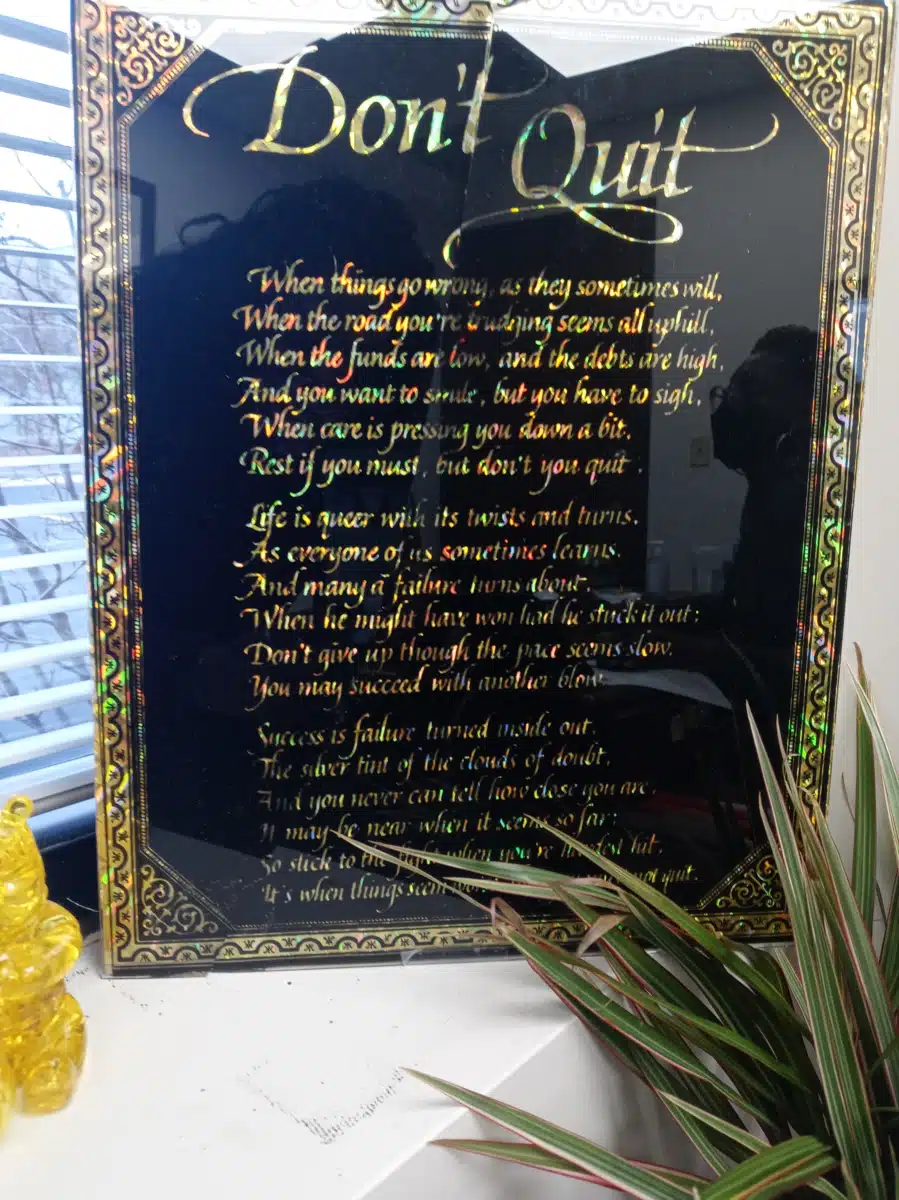 Don't Quit
When things go wrong, as they sometimes will,
When the road you're trudging seems all uphill,
When the funds are low, and the debts are high,
And you want to smile, but you have to sigh,
When care is pressing you down a bit,
Rest if you must, but don't you quit.
Life is queer with its twists and turns,
As everyone of us sometimes learns,
And many a failure turns about
When he might have won had he stuck it out;
Don't give up though the pace seems slow,
You may succeed with another blow.
Success is failure turned inside out,
The silver tint of the clouds of doubt,
And you never can tell how close you are,
It may be near when it seems so far;
So stick to the fight when you're hardest hit,
It's when things seem not quit.